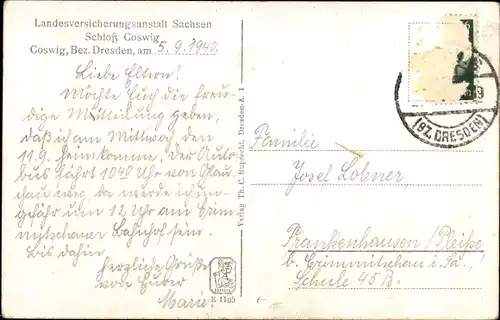 Landesversicherungsanstalt Sachsen
Schloß Coswig
Coswig, Bez. Dresden, am 5.9.1940.
Liebe Eltern!
Möchte Euch die freu-
dige Mitteilung geben,
daß ich am Mittwoch, den
11.9. heimkomme. Der Auto-
bus fährt 10 40 Uhr von Glau-
chau weg, da werde ich un-
gefähr um 12 Uhr am Crim-
mitschauer Bahnhof sein.
Bis dahin
herzliche Grüße
von Eurer
Verlag Th. C. Ruprecht, Dresden-A. 1
K 1105
(BZ. DRESDEN)
Familie
Josef Lobner,
Frankenhausen /Pleiße
b. Crimmitschau i. Sa.,
Schule 45 B.